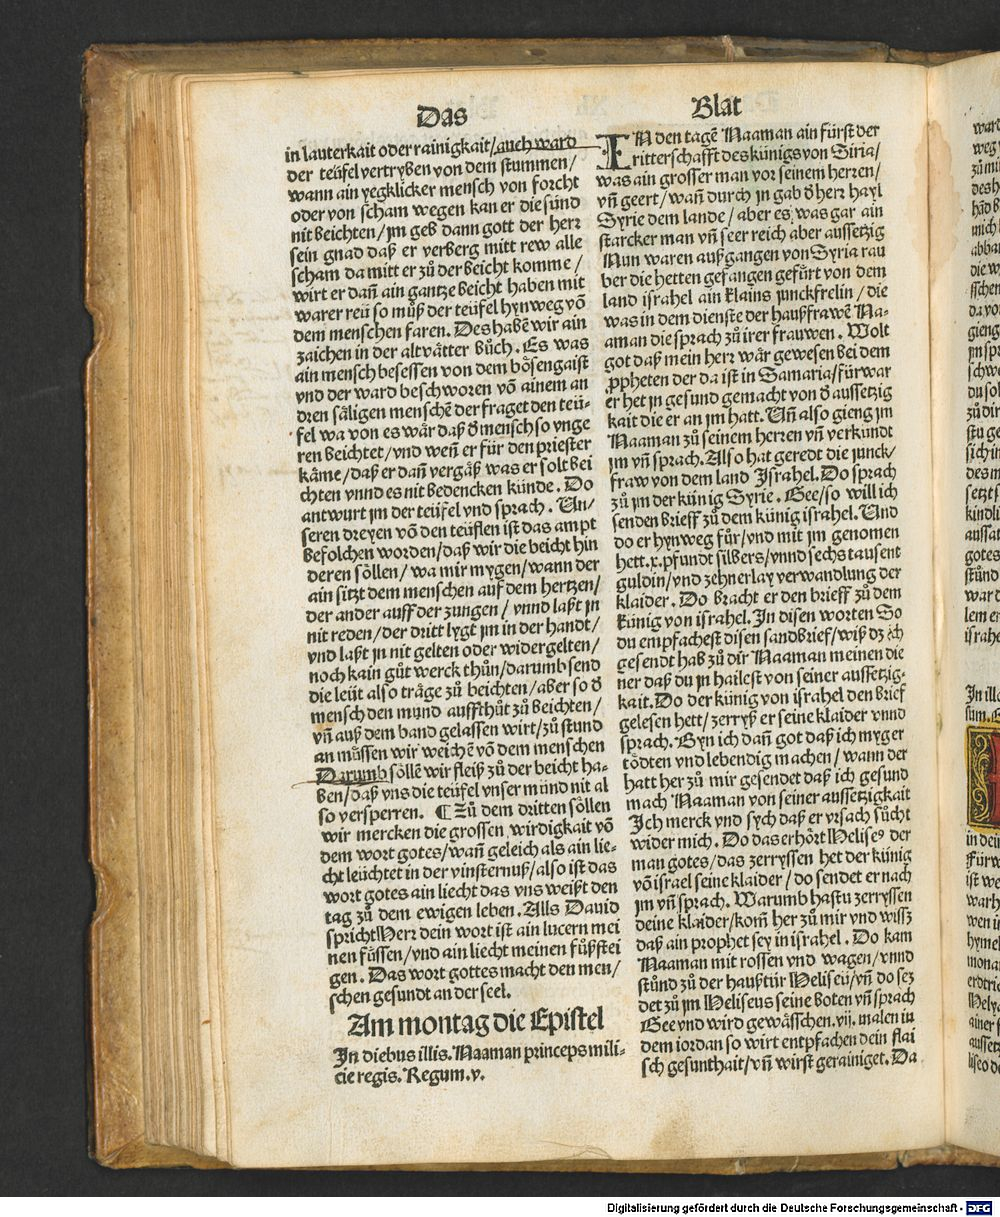 Das Blat
in lauterkait oder rainigkait/auch ward
der teüfel vertryben von dem stummen/
wann ain yegklicker mensch von forcht
oder von scham wegen kan er die sünd
nit beichten/jm geb dann gott der herr
sein gnad daß er verberg mitt rew alle
scham da mitt er zů der beicht komme/
wirt er dañ ain gantze beicht haben mit
warer reü so můß der teüfel hynweg võ
dem menschen faren. Des habẽ wir ain
zaichen in der altvätter bůch. Es was
ain mensch besessen von dem bösengaist
vnd der ward beschworen võ ainem an
dren säligen menschẽ der fraget den teü-
fel wa von es wår daß d̕ mensch so vnge
ren beichtet/vnd weñ er für den priester
käme/daß er dañ vergäß was er solt bei
chten vnnd es nit bedencken künde. Do
antwurt jm der teüfel vnd sprach. Un-
seren dreyen võ den teüflen ist das ampt
befolchen worden/daß wir die beicht hin
deren söllen/wa mir mygen/wann der
ain sitzt dem menschen auf dem hertzen/
der ander auff der zungen/vnnd laßt jn
nit reden/der dritt lygt jm in der handt/
vnd laßt jn nit gelten oder widergelten/
noch kain gůt werck thůn/darumb send
die leüt also träge zů beichten/aber so d̕
mensch den mund auffthůt zů beichten/
vñ auß dem band gelassen wirt/zů stund
an müssen wir weichẽ võ dem menschen
Darumb söllẽ wir fleiß zů der beicht ha-
ben/daß vns die teüfel vnser mund nit al
so versperren. ¶ Zů dem dritten söllen
wir mercken die grossen wirdigkait võ
dem wort gotes/wañ geleich als ain lie-
cht leüchtet in der vinsternuß/also ist das
wort gotes ain liecht das vns weißt den
tag zů dem ewigen leben. Alls Dauid
spricht Herr dein wort ist ain lucern mei
nen füssen/vnd ain liecht meinen fůßstei
gen. Das wort gottes macht den men/
schen gesundt an der seel.
Am montag die Epistel
In diebus illis. Naaman princeps mili-
cie regis. Regum.v.
IN den tagẽ Naaman ain fürst der
ritterschafft des künigs von Siria/
was ain grosser man vor seinem herren/
vñ geert/wañ durch jn gab d̕ herr hayl
Syrie dem lande/aber es was gar ain
starcker man vñ seer reich aber aussetzig
Nun waren außgangen von Syria rau
ber die hetten gefangen gefürt von dem
land israhel ain klains junckfrelin/die
was in dem dienste der haußfrawẽ Na-
aman die sprach zů irer frauwen. Wolt
got daß mein herr wär gewesen bei dem
ꝓpheten der da ist in Samaria/fürwar
er het jn gesund gemacht von d̕ aussetzig
kait die er an jm hatt. Uñ also gieng jm
Naaman zů seinem herren vñ verkündt
jm vñ sprach. Also hat geredt die junck/
fraw von dem land Israhel. Do sprach
zů jm der künig Syrie. Gee/so will ich
senden brieff zů dem künig israhel. Und
do er hynweg fůr/vnd mit jm genomen
hett.x.pfundt silbers/vnnd sechs tausent
guldin/vnd zehnerlay verwandlung der
klaider. Do bracht er den brieff zů dem
künig von israhel. In disen worten So
du empfachest disen sandbrief/wiß dz ich
gesendt hab zů dir Naaman meinen die
ner daß du jn hailest von seiner aussetzig-
kait. Do der künig von israhel den brief
gelesen hett/zerryß er seine klaider vnnd
sprach. Byn ich dañ got daß ich myger
tödten vnd lebendig machen/wann der
hatt her zů mir gesendet daß ich gesund
mach Naaman von seiner aussetzigkait
Ich merck vnd sych daß er vrsach sůcht
wider mich. Do das erhört Heliseꝰ der
man gotes/das zerryssen het der künig
võ israel seine klaider/do sendet er nach
jm vñ sprach. Warumb hastu zerryssen
deine klaider/kom̃ her zů mir vnd wissz
daß ain prophet sey in israhel. Do kam
Naaman mit rossen vnd wagen/vnnd
stůnd zů der haußtür Heliseü/vñ do sez
det zů jm Heliseus seine boten vñ sprach
Gee vnd wird gewässchen.vij.malen in
dem iordan so wirt entpfachen dein flai
sch gesunthait/vñ wirst gerainiget. Da
Digitalisierung gefördert durch die Deutsche Forschungsgemeinschaft - DFG